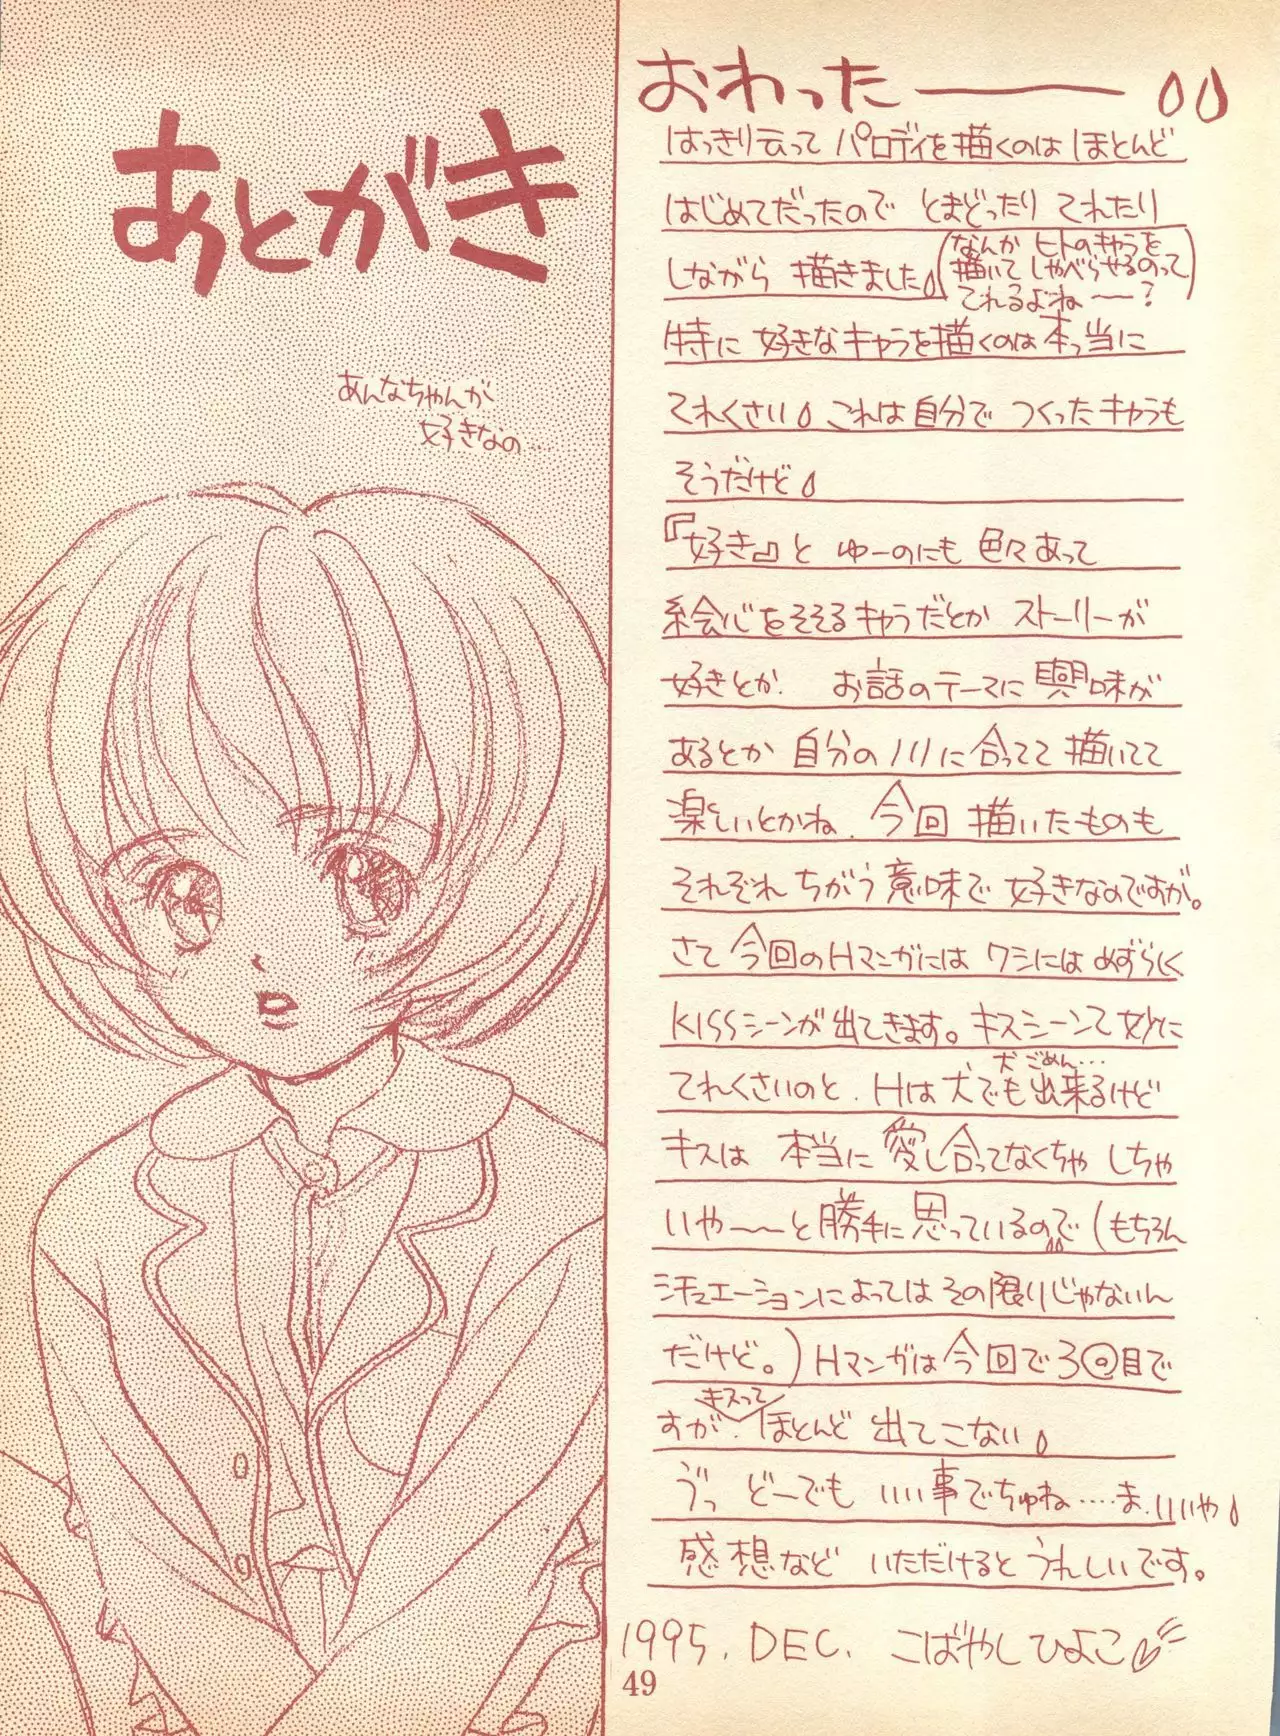 あとがき
あんなちゃんが
好きなの……
おわったーー
はっきり云って パロディを描くのは ほとんど
はじめてだったので とまどったり てれたり
しながら 描きました
(なんか ヒトのキャラを
描いて しゃべらせるのって
てれるよねー?)
特に 好きなキャラを描くのは本っ当に
てれくさい これは自分で つくったキャラも
そうだけど
『好き』と ゆーのにも 色々あって
絵心をそそるキャラだとか ストーリーが
好きとか. お話のテーマに興味が
あるとか 自分のノリに合ってて 描いてて
楽しいとかね. 今回 描いたものも
それぞれ ちがう意味で 好きなのですが。
さて 今回のHマンガには ワシには めずらしく
KISSシーンが 出てきます。キスシーンて 妙に
てれくさいのと. Hは犬でも出来るけど
犬 ごめん…
キスは 本当に 愛し合ってなくちゃ しちゃ
いや〜〜と勝手に 思っているので (もちろん
シチュエーションによっては その限りじゃないん
だけど。) Hマンガは今回で3回目で
すが. キスって ほとんど 出てこない
ゔっ どーでも いい事でちゅね……ま.いいや
感想など いただけると うれしいです。
1995. DEC. こばやしひよこ
49